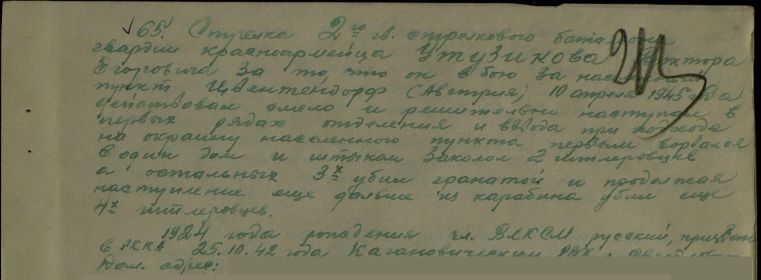 65. Стрелка 2го гв. стрелкового
гвардии красноармейца Утузикова Виктора
Егоровича за то, что он в бою за
пункт (Австрия) 10 апреля 1945 года
действовал смело и решительно наступал в
первых рядах отделения и взвода при подходе
на окраину населенного пункта первым ворвался
в один дом и штыком заколол 2 гитлеровцев
а остальных 3х убил гранатой и продолжая
наступление еще дальше из карабина убил еще
4х гитлеровцев.
1924 года рождения чл. ВЛКСМ русский, призван
в РККА 25.10.42 года Кагановическим РВК г.
Дом. адрес: